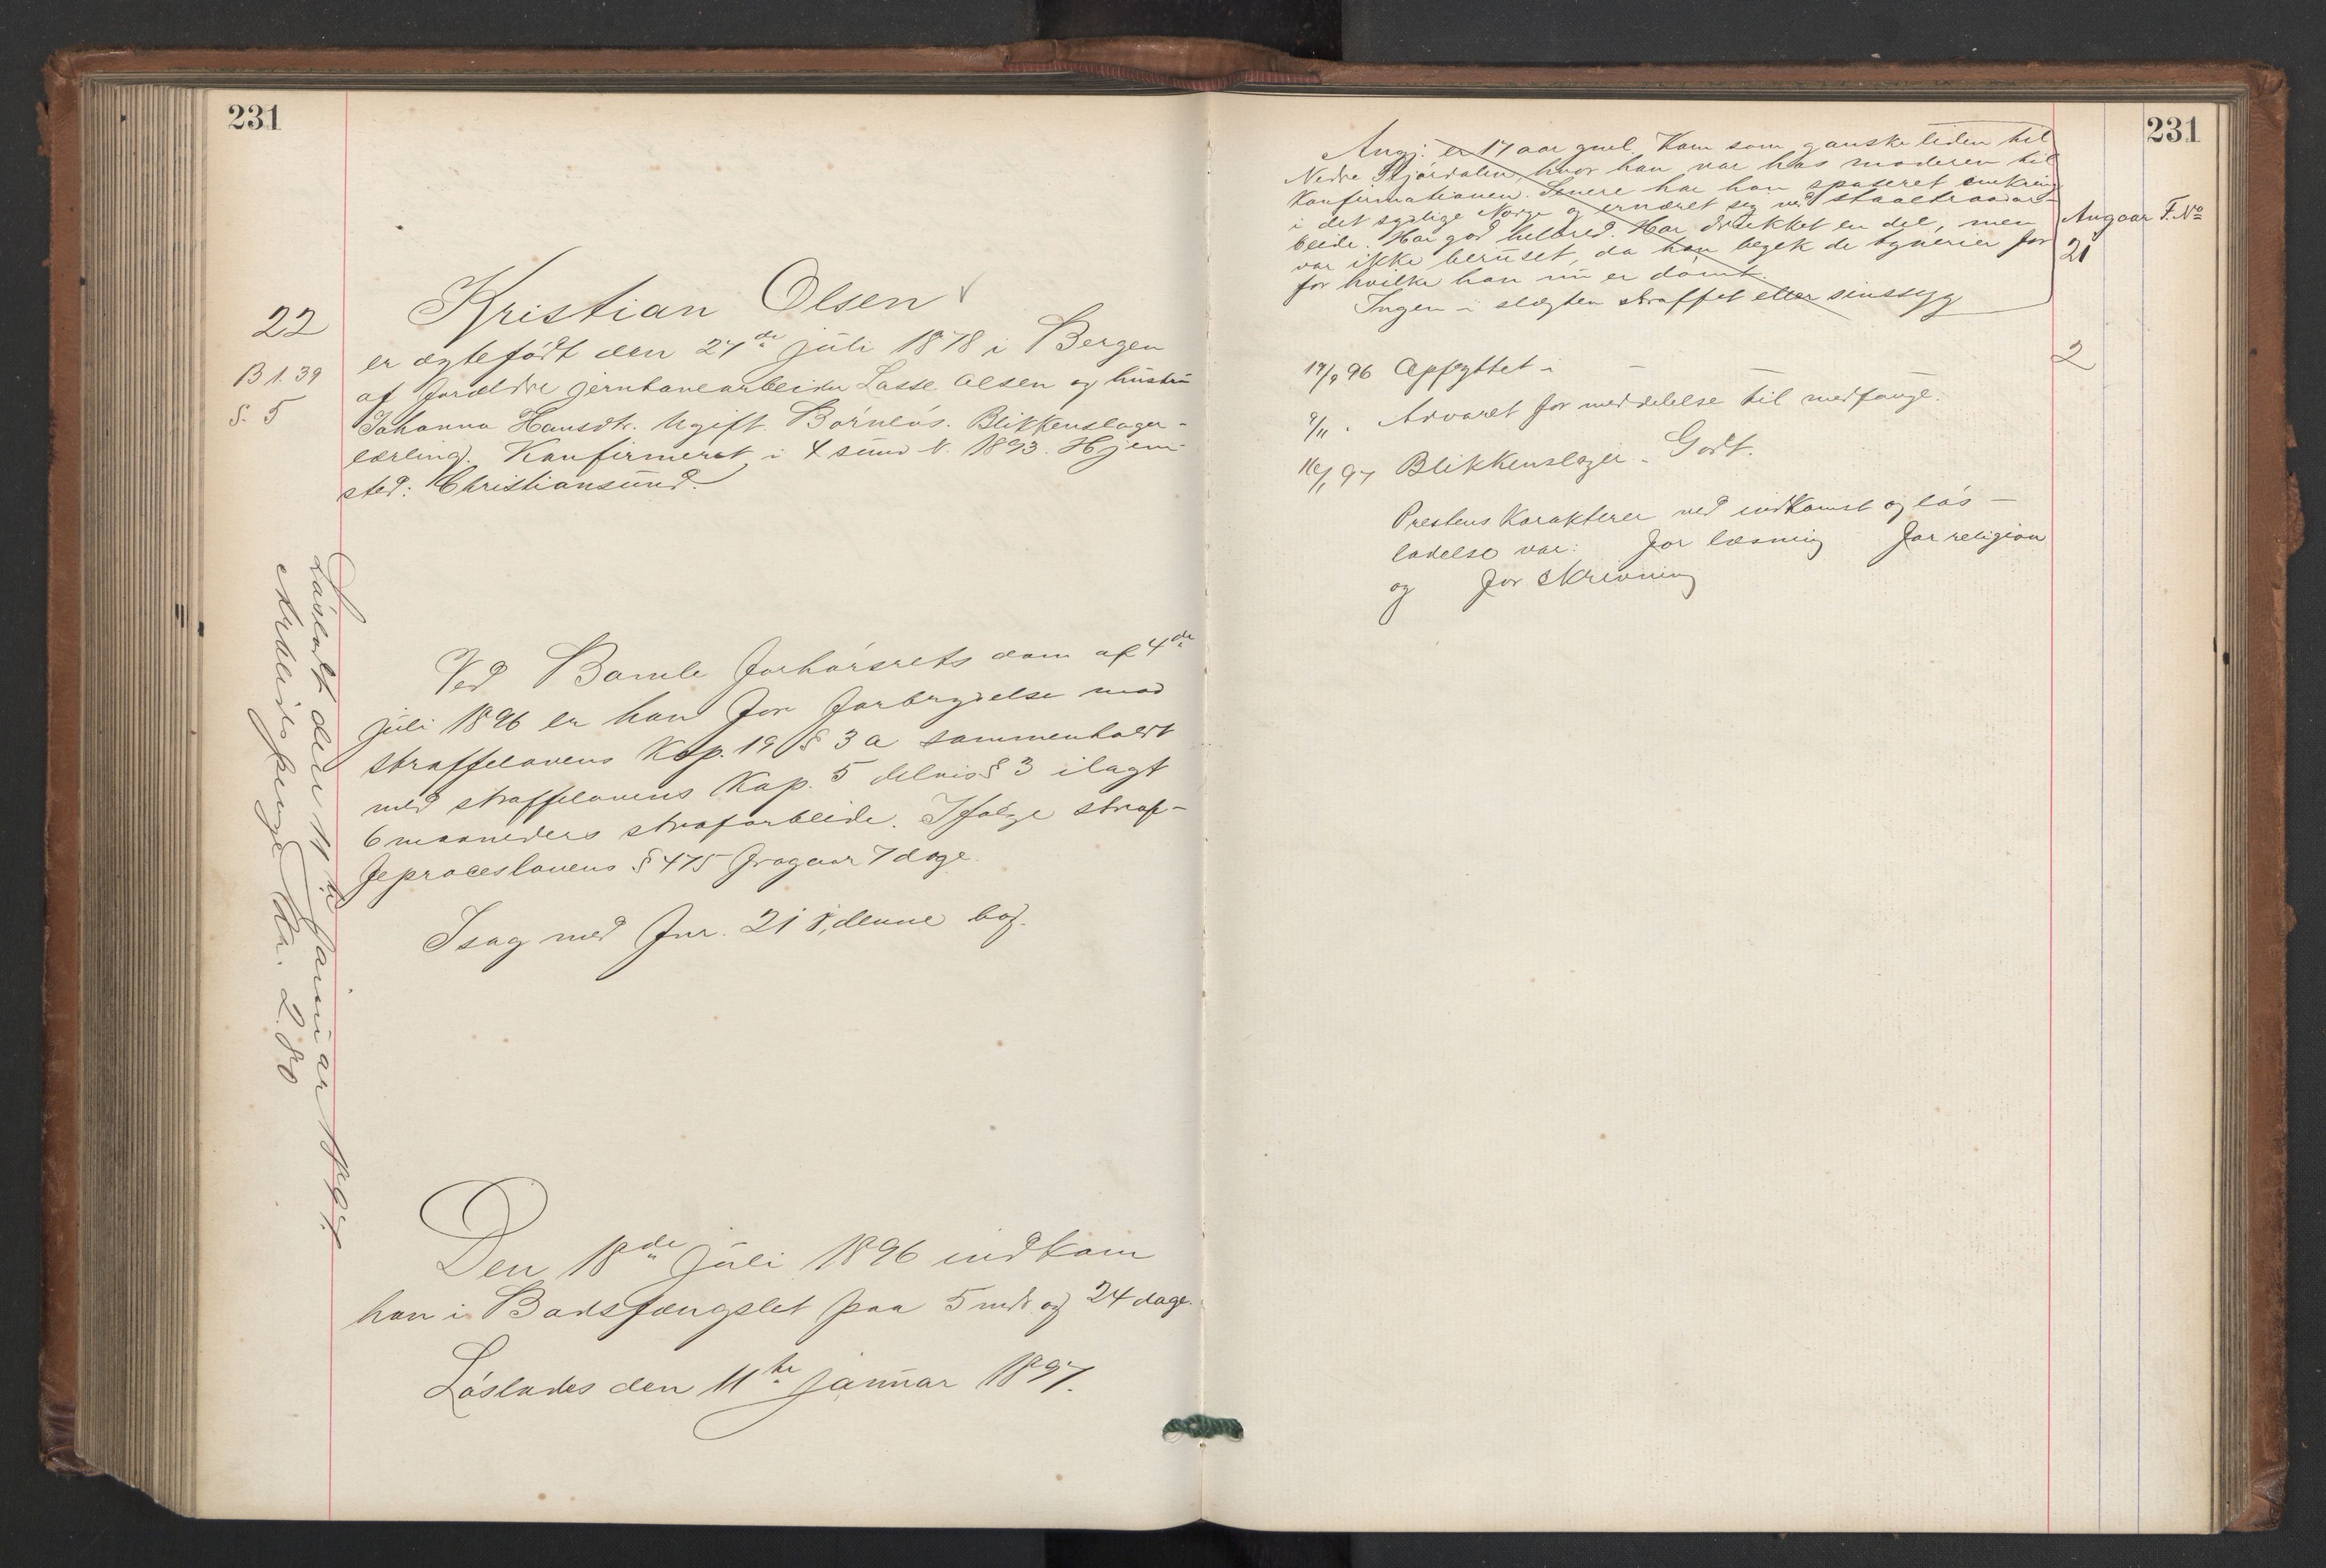 231
22
B 1. 39
S. 5
Kristian Olsen
er ægtefödt den 27de juli 1878 i Bergen
af forældre jernbanearbeider Lasse Olsen og hustru
Johanna Hansdtr. Ugift. Börnlös. Blikkenslager-
lærling. Konfirmeret i X sund N. 1893. Hjem-
sted: Christiansund.
Lösladt den 11te januar 1897.
Arbeidspenge Kr. 2.80
Ved Bamle Forhörsrets dom af 4de
juli 1896 er han for forbrydelse mod
straffelovens Kap. 19 § 3 a sammenholdt
med straffelovens Kap. 5 delvis § 3 ilagt
6 maaneders strafarbeide. Ifölge straf-
feproceslovens § 475 fragaar 7 dage.
I sag med Fnr. 21 i denne bog.
Den 18de juli 1896 indkom
han i Bodsfængslet paa 5 mdr. og 24 dage.
Löslades den 11te januar 1897.
231
Angj: er 17 aar gml. Kom som ganske liden til
Nedre Stjördalen, hvor han var hos moderen til
Konfirmationen. Senere har han spaseret omkring
i det sydlige Norge og ernæret seg ved staaltraadar-
beide. Har god helbred. Har drukket en del, men
var ikke beruset, da han begik de tyverier for
for hvilke han nu er dömt.
Ingen i slægten straffet eller sinssyg
Angaar F. No
21
17/9 96 Opflyttet i
2
9/11 . Advaret for meddelelse til medfange.
16/1 97 Blikkenslager - Godt.
Prestens Karakterer ved indkomst og lös-
ladelse var: for læsning for religion
og for skrivning